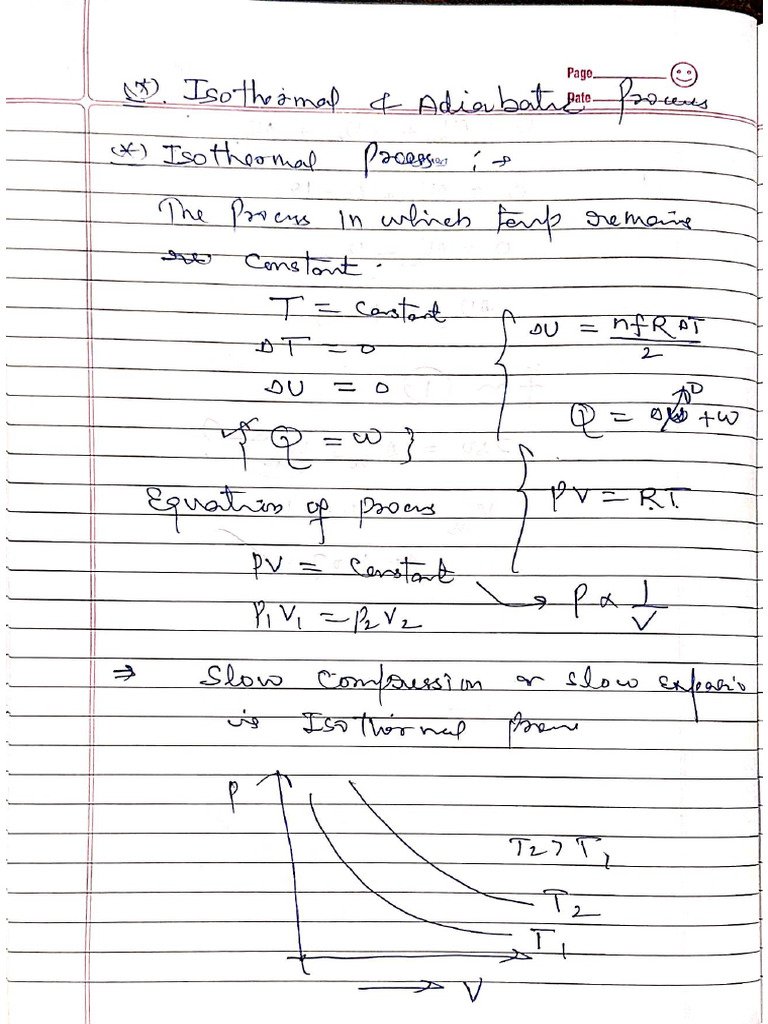 Page
Date
(*). Isothermal & Adiabatic Process
(*) Isothermal Process :→
The Process in which temp remains
constant.
T = constant
ΔT = 0
ΔU = 0
{ Q = w }
ΔU = nfRΔT/2
Q = ΔU↗0 + w
Equation of process
PV = RT
PV = constant
→ P ∝ 1/V
P₁V₁ = P₂V₂
⇒ Slow compression or slow expansio
is Isothermal
P
T₂ > T₁
T₂
T₁
→ V